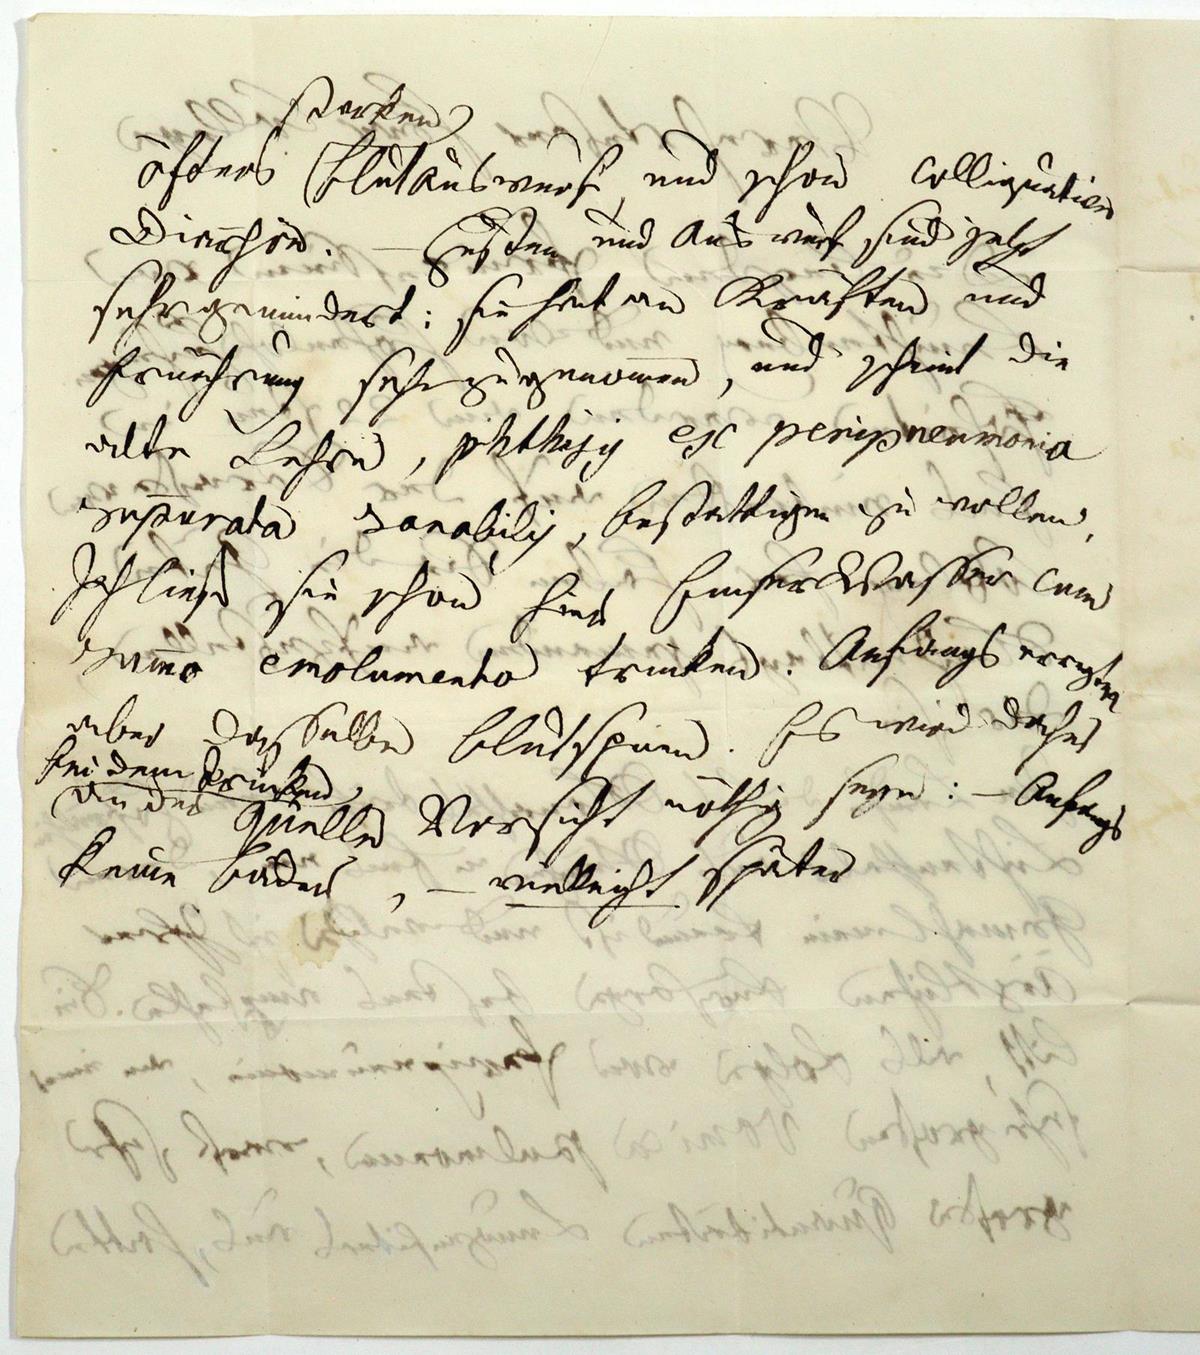 starken
öfters Blutauswurf, und schon colliquative
Diarrhöe. — Husten und Auswurf sind jetzt
sehr gemindert; sie hat an Kräften und
Ernährung sehr zugenom̄en, und scheint die
alte Lehre, phthisis ex peripneumonia
suppurata sanabilis, bestättigen zu wollen.
Ich ließ sie schon hier Emserwasser cum
sum̄o emolumento trinken. Anfangs erregte
aber dasselbe Blutspeien. Es wird daher
bei dem Trinken
an der Quelle Vorsicht nöthig seyn: — Anfangs
keine Bäder, — vielleicht später